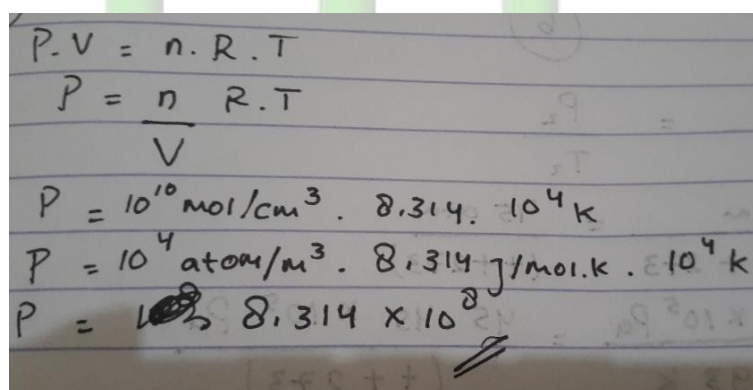 P.V = n.R.T
P = n/V R.T
P = 10¹⁰ mol/cm³ . 8,314. 10⁴ K
P = 10⁴ atom/m³ . 8,314 J/mol.K . 10⁴ K
P = 8,314 × 10⁸